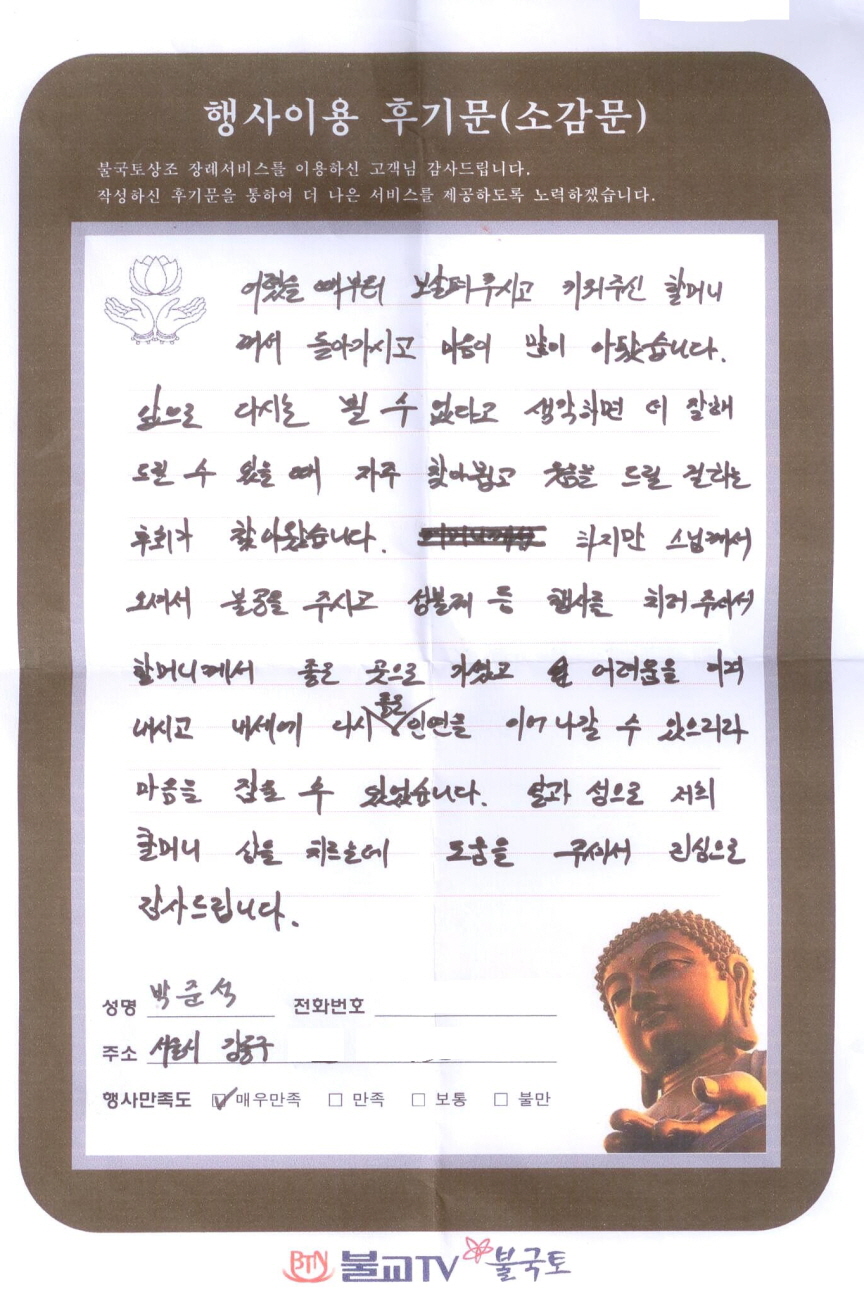 행사이용 후기문(소감문)
불국토상조 장례서비스를 이용하신 고객님 감사드립니다.
작성하신 후기문을 통하여 더 나은 서비스를 제공하도록 노력하겠습니다.
어렸을 때부터 보살펴주시고 키워주신 할머니
께서 돌아가시고 마음이 많이 아팠습니다.
앞으로 다시는 뵐 수 없다고 생각하면 더 잘해
드릴 수 있을 때 자주 찾아뵙고 웃음을 드릴 걸하는
후회가 찾아왔습니다. 하지만 스님께서
오셔서 불공을 주시고 성불제 등 행사를 치러주셔서
할머니께서 좋은 곳으로 가셨고 어려움을 이겨
내시고 내세에 다시 좋은 인연을 이어 나갈 수 있으리라
마음을 잡을 수 있었습니다. 성으로 저희
할머니 상을 치르는데 도움을 주셔서 진심으로
감사드립니다.
성명 박준석 전화번호
주소 서울시 강동구
행사만족도 매우만족 만족 보통 불만
BTN 불교TV 불국토